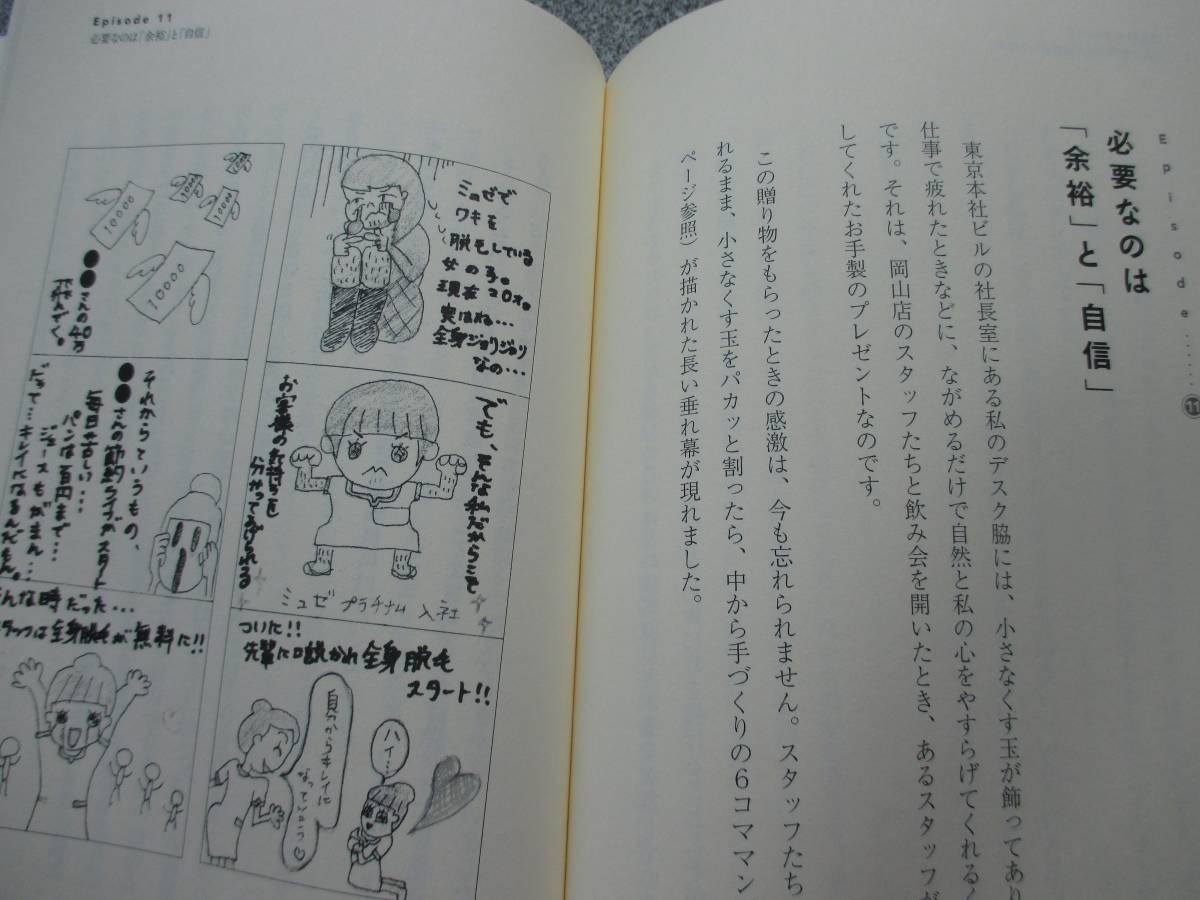 Episode……⑪
必要なのは
「余裕」と「自信」
東京本社ビルの社長室にある私のデスク脇には、小さなくす玉が飾ってあり
仕事で疲れたときなどに、ながめるだけで自然と私の心をやすらげてくれるく
です。それは、岡山店のスタッフたちと飲み会を開いたとき、あるスタッフが
してくれたお手製のプレゼントなのです。
この贈り物をもらったときの感激は、今も忘れられません。スタッフたち
れるまま、小さなくす玉をパカッと割ったら、中から手づくりの6コママン
ページ参照）が描かれた長い垂れ幕が現れました。
Episode 11
必要なのは「余裕」と「自信」
ミュゼで
ワキを
脱毛している
女の子。
現在20才。
実はね…
全身ジョリジョリ
なの…
でも、そんな私だからこそ
お客様の気持ちを
分かってあげられる
ミュゼプラチナム 入社
ついに!!
先輩に口説かれ全身脱毛
スタート!!
自分からキレイに
なっていこう♡
ハイ…
10000
10000
10000
10000
●●さんの40万
飛んでく。
それからというもの、
●●さんの節約ライフがスタート
毎日苦しい…
パンは百円まで…
ジュースもがまん…
だって…キレイになるんだもん。
んな時だった…
タッフは全身脱毛が無料に!!